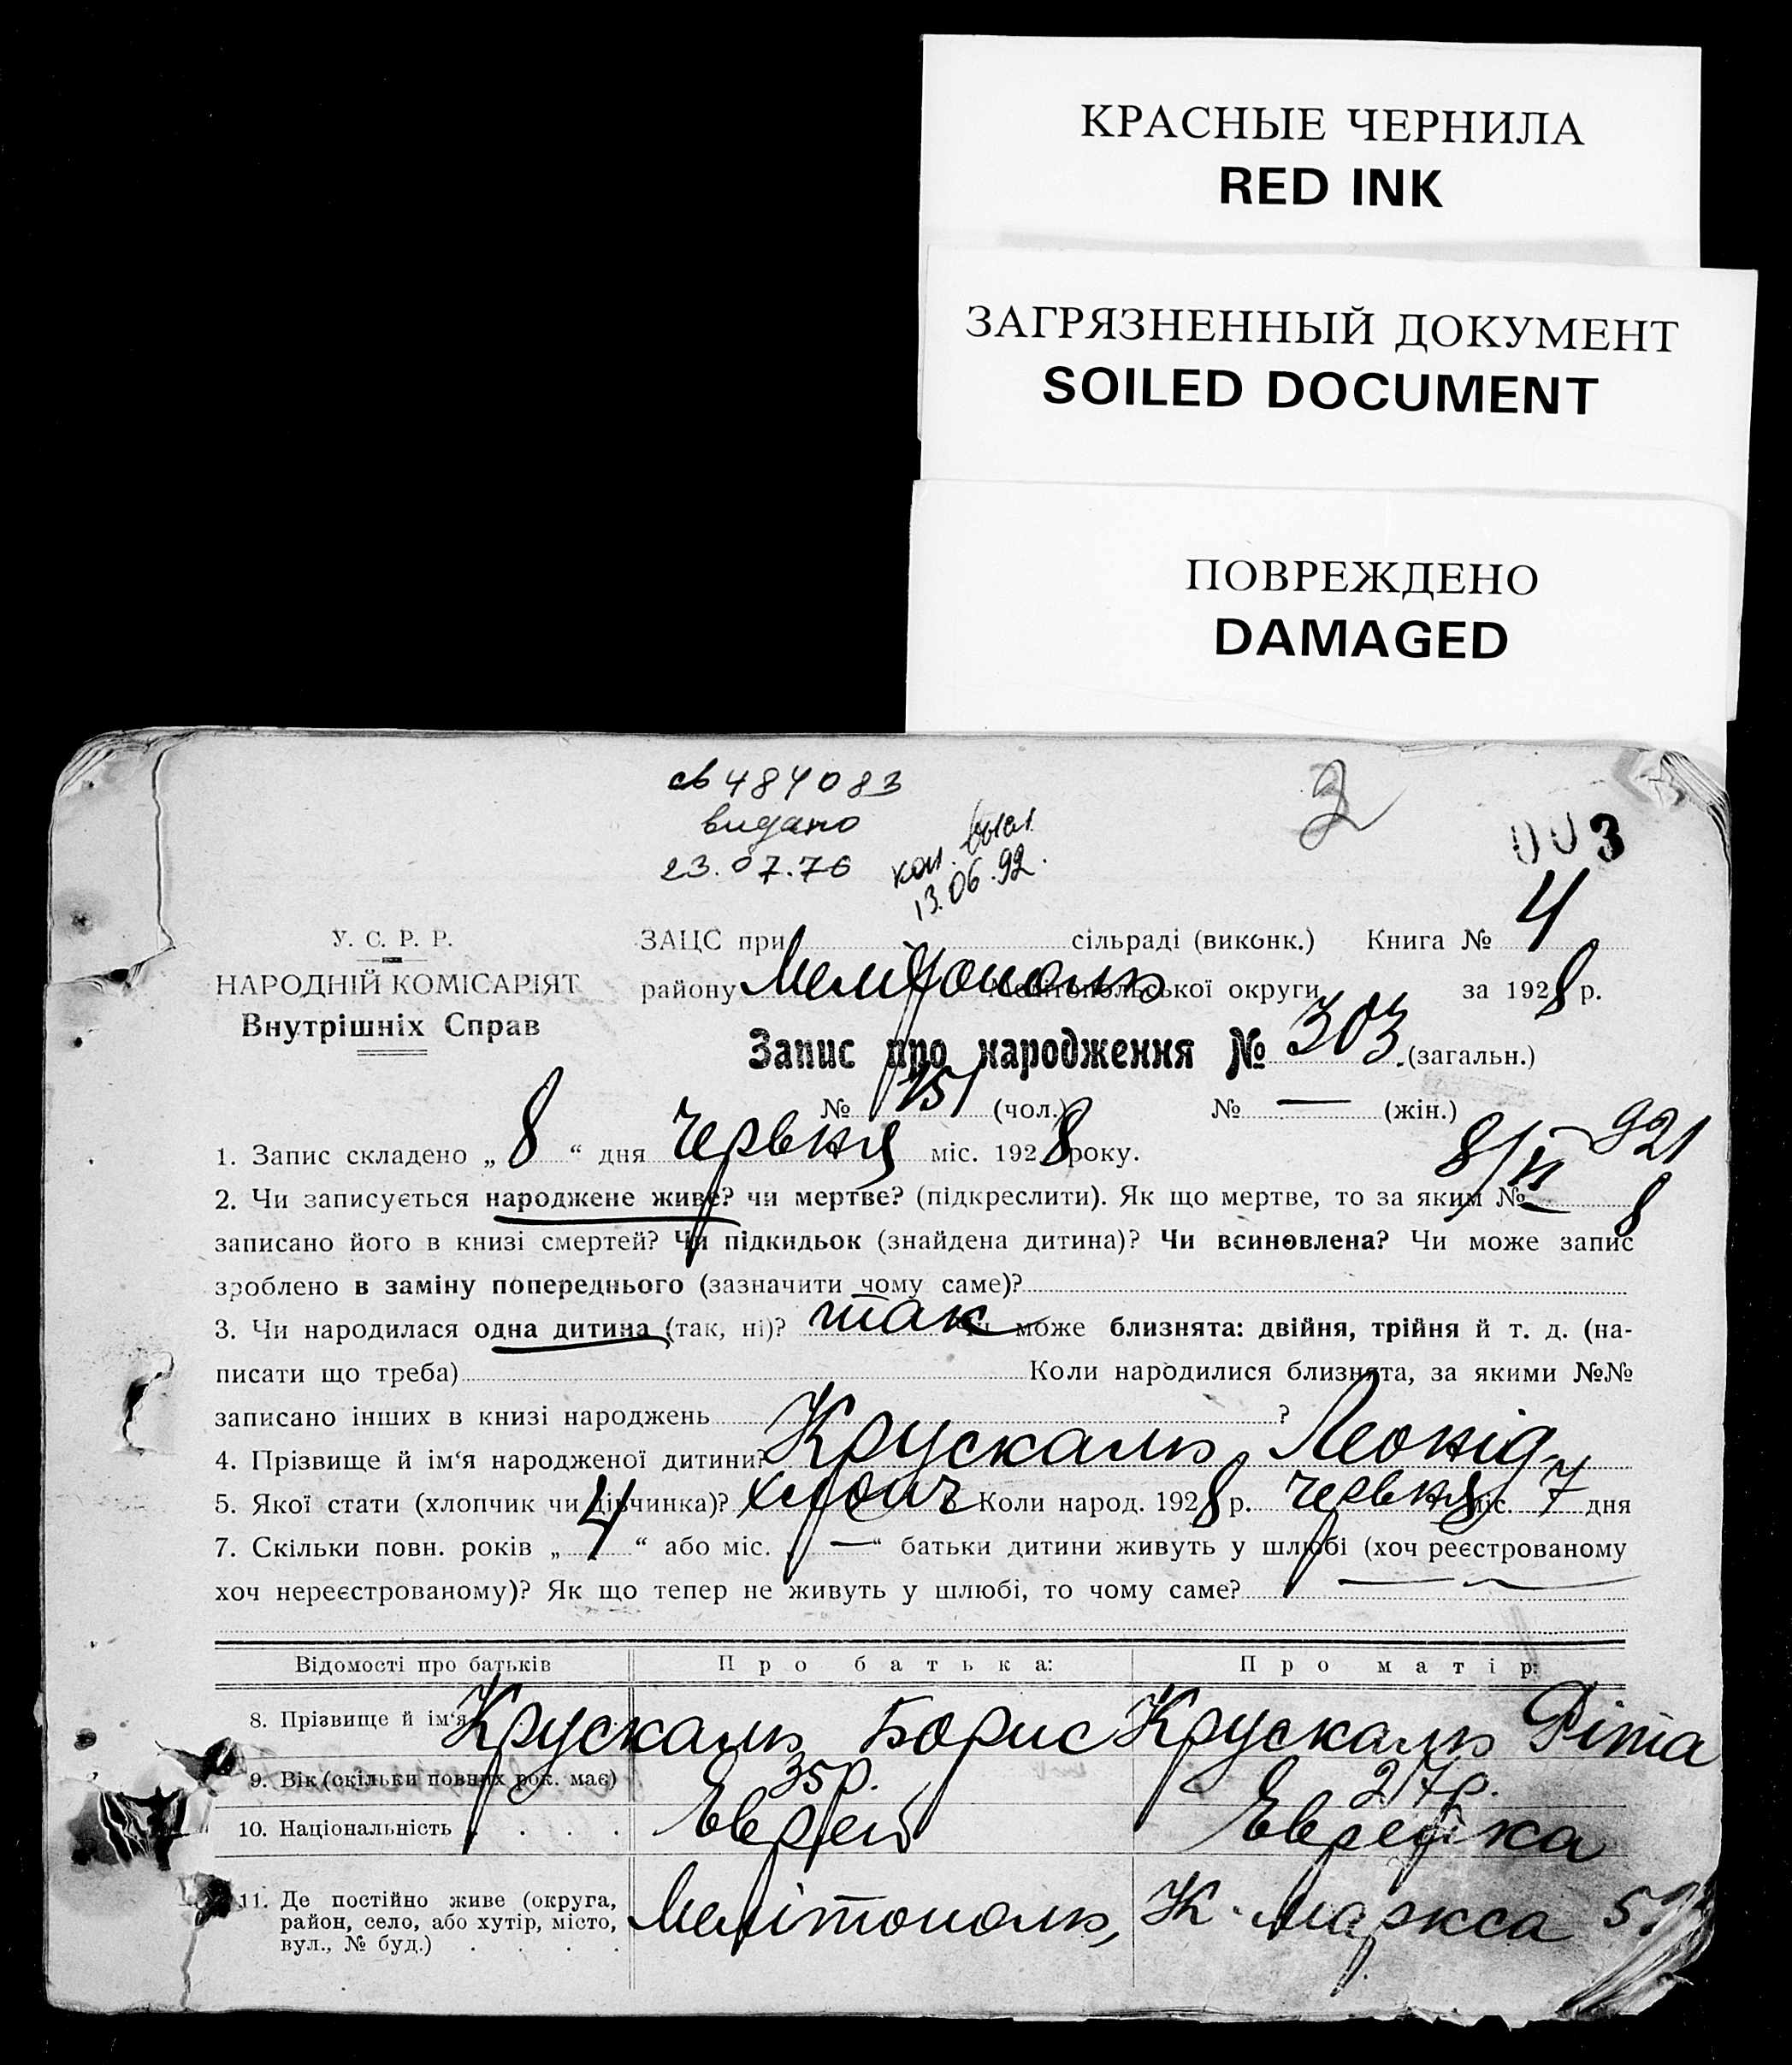 КРАСНЫЕ ЧЕРНИЛА
RED INK
ЗАГРЯЗНЕННЫЙ ДОКУМЕНТ
SOILED DOCUMENT
ПОВРЕЖДЕНО
DAMAGED
св 484083
видано
23.07.76
13.06.92.
2
003
У. С. Р. Р.
НАРОДНІЙ КОМІСАРІЯТ
Внутрішніх Справ
ЗАЦС при сільраді (виконк.) Книга № 4
району Мелітополь Мелітопольської округи за 1928 р.
Запис про народження № 303 (загальн.)
№ 151 (чол.) № — (жін.)
1. Запис складено „ 8 “ дня червня міс. 1928 року.
2. Чи записується народжене живе? чи мертве? (підкреслити). Як що мертве, то за яким №
записано його в книзі смертей? Чи підкидьок (знайдена дитина)? Чи всиновлена? Чи може запис
зроблено в заміну попереднього (зазначити чому саме)?
3. Чи народилася одна дитина (так, ні)? так Чи може близнята: двійня, трійня й т. д. (на-
писати що треба) Коли народилися близнята, за якими №№
записано інших в книзі народжень ?
4. Прізвище й ім‘я народженої дитини? Крускаль Леонід
5. Якої стати (хлопчик чи дівчинка)? хлопч. Коли народ. 1928 р. червня міс. 7 дня
7. Скільки повн. років „ 4 “ або міс. „ — “ батьки дитини живуть у шлюбі (хоч реєстрованому
хоч нереєстрованому)? Як що тепер не живуть у шлюбі, то чому саме?
Відомості про батьків Про батька: Про матір:
8. Прізвище й ім‘я Крускаль Борис Крускаль Ріта
9. Вік (скільки повних рок. має) 35 р. 27 р.
10. Національність . . . . Еврей Еврейка
11. Де постійно живе (округа,
район, село, або хутір, місто,
вул., № буд.) . . . . Мелітополь, К. Маркса